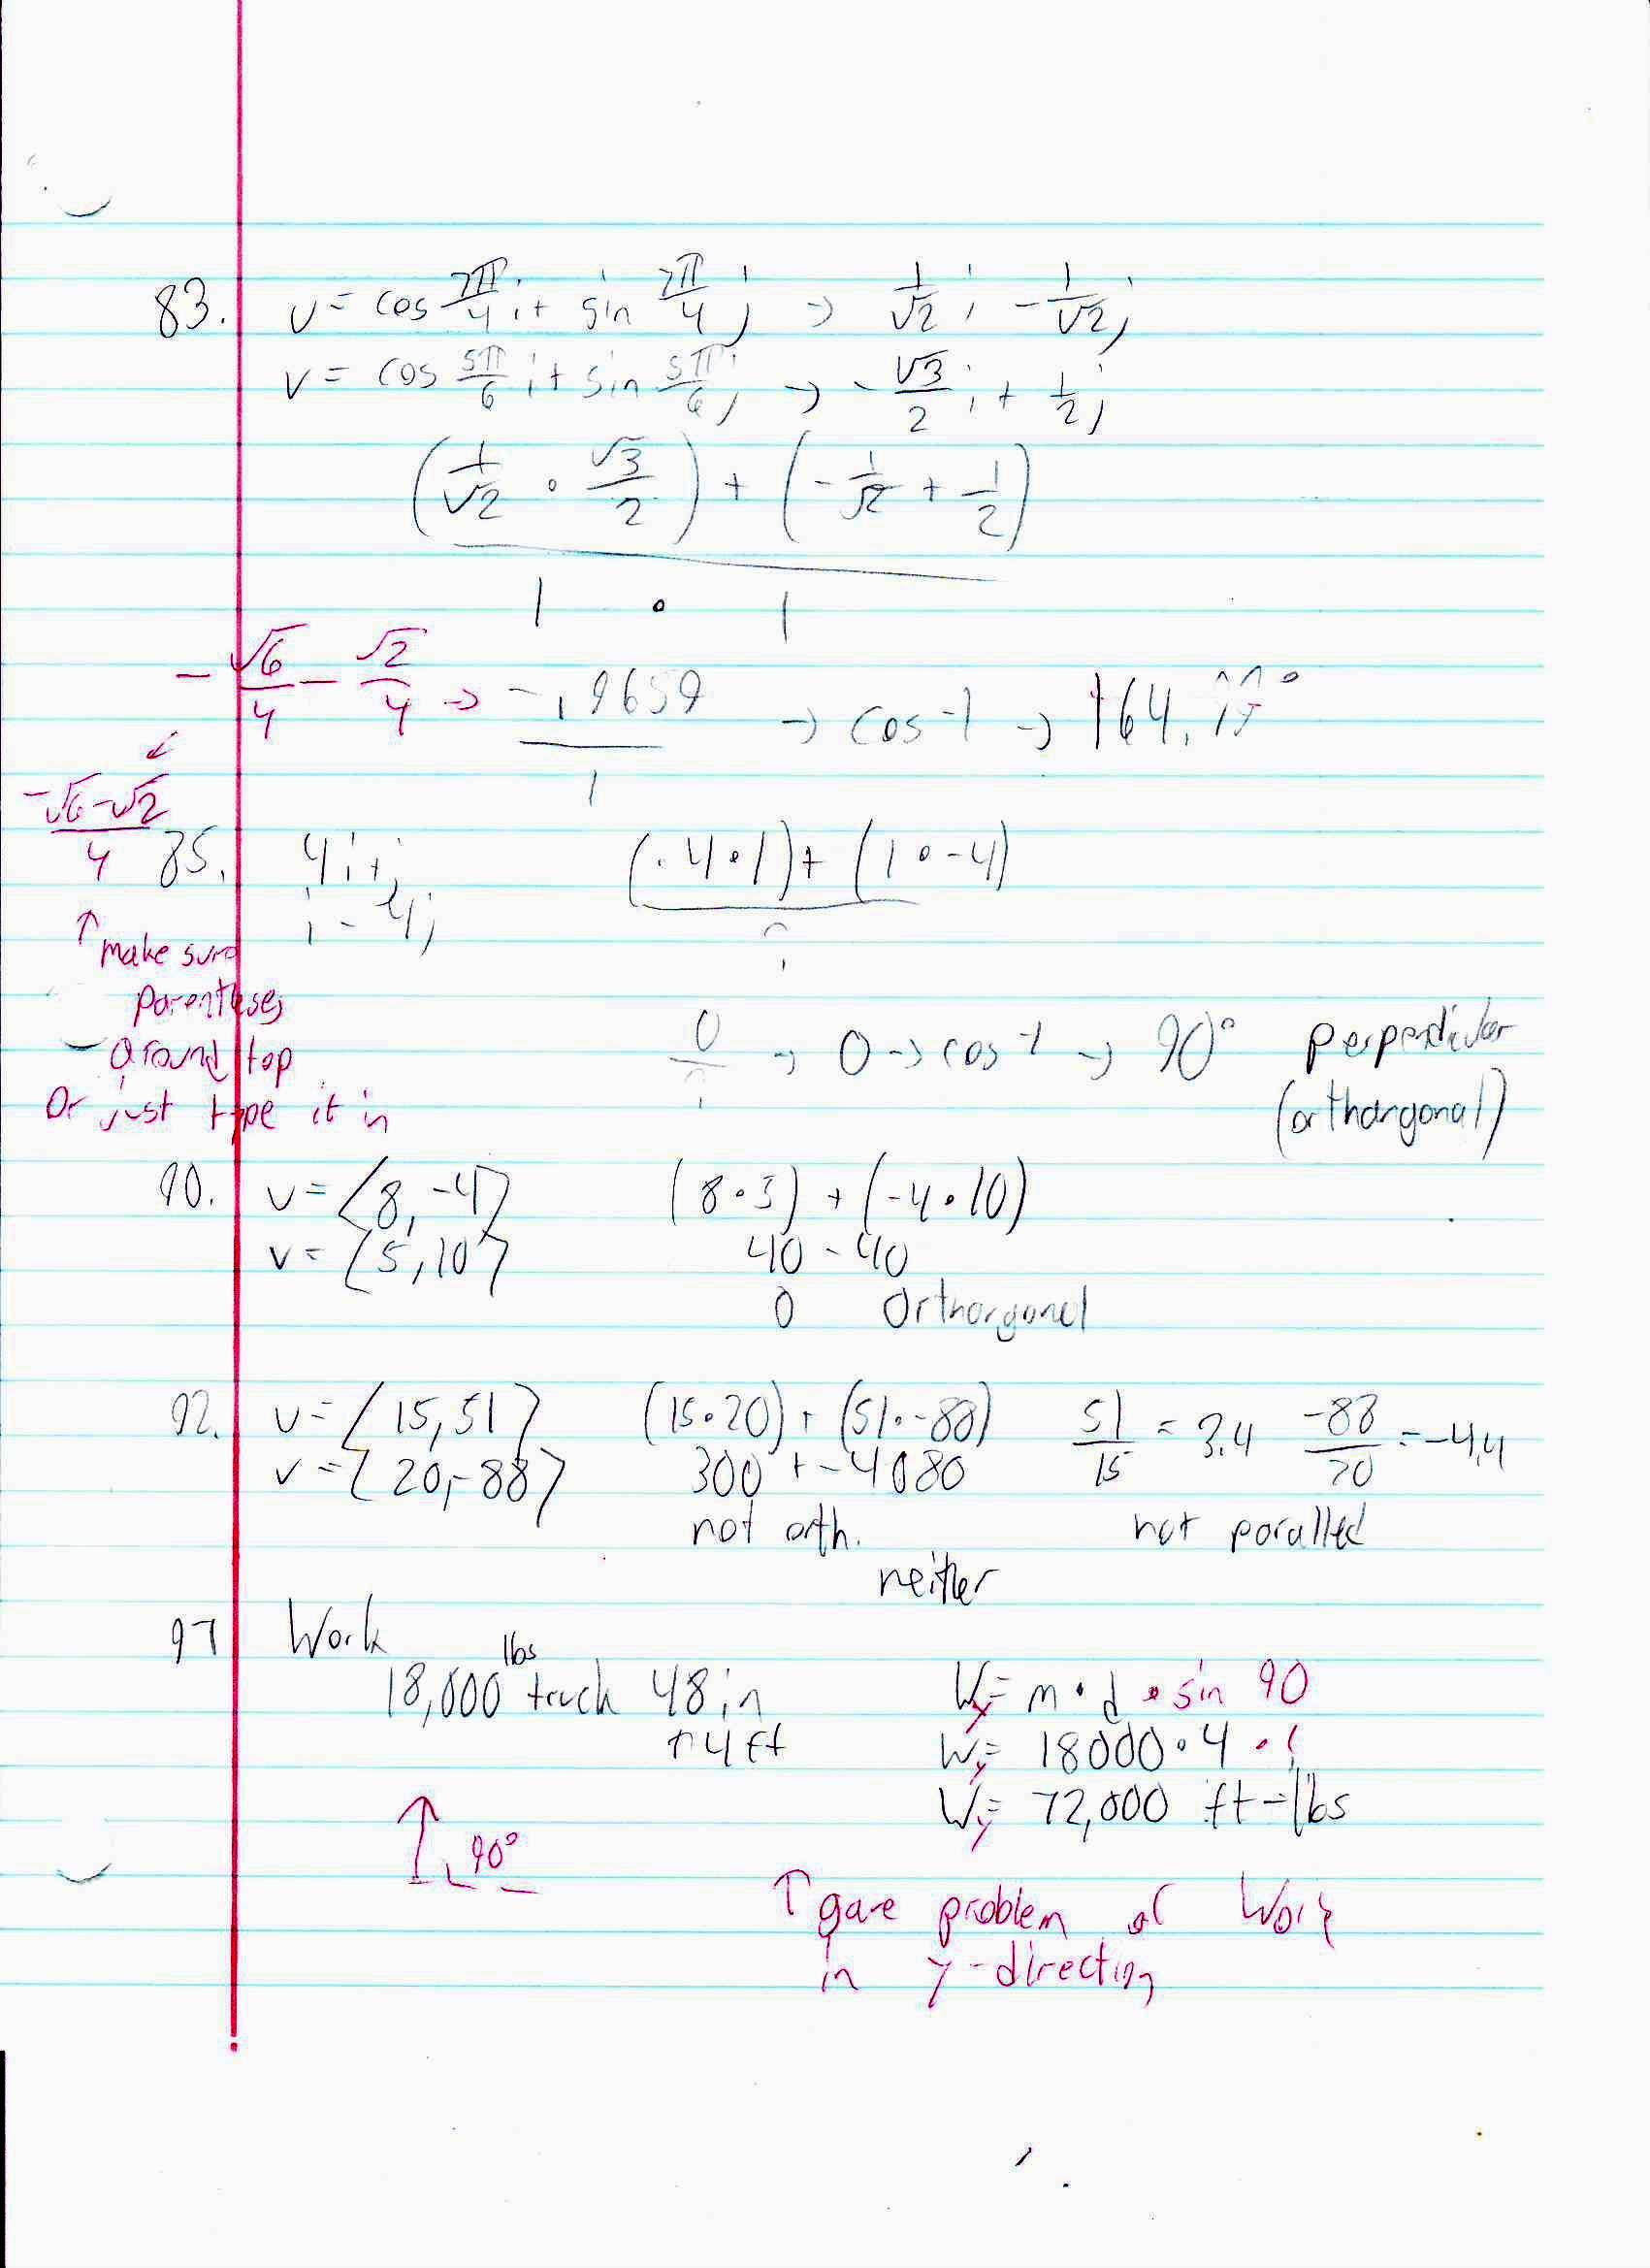 83. u = cos 7π/4 i + sin 7π/4 j → 1/√2 i - 1/√2 j
v = cos 5π/6 i + sin 5π/6 j → -√3/2 i + 1/2 j
(1/√2 • √3/2) + (-1/√2 + 1/2)
1 • 1
-√6/4 - √2/4 → -.9659/1 → cos-1 → 164.
-√6-√2/4
85. 4i+j (4•1)+(1•-4)
i-4j
↑ make sure
parentheses
around top
Or just type it in
0 → 0 → cos-1 → 90° perpendicular
(orthorgonal)
90. u = ⟨8,-4⟩ (8•5) + (-4•10)
v = ⟨5,10⟩ 40 - 40
0 Orthorgonal
92. u = ⟨15,51⟩ (15•20) + (51•-88) 51/15 = 3.4 -88/20 = -4.4
v = ⟨20,-88⟩ 300 + -4080
not orth. not paralled
neither
97 Work
18,000 lbs truck 48 in Wy = m • d • sin 90
↑ 4 ft Wy = 18000 • 4 • 1
Wy = 72,000 ft-lbs
90°
↑ gave problem of Work
in y-direction